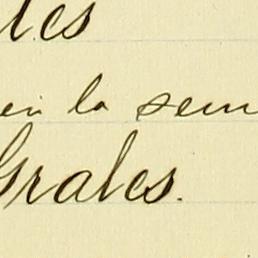 tes
en la sem
Grales.